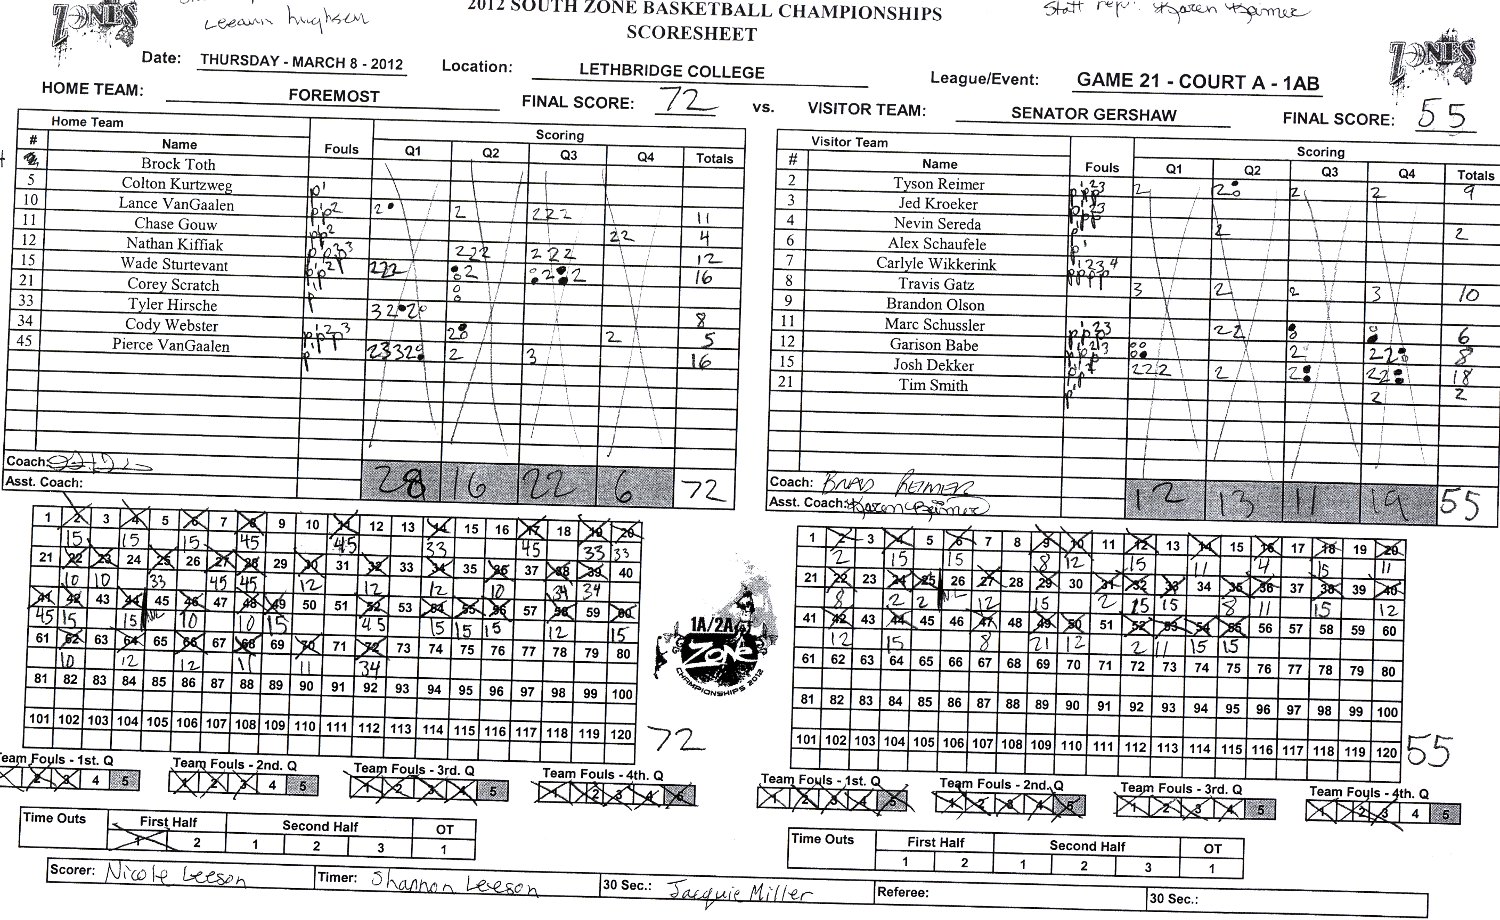 Leeann Hughson
Staff rep: Karen Reimer
2012 SOUTH ZONE BASKETBALL CHAMPIONSHIPS
SCORESHEET
ZONES
ZONES
Date: THURSDAY - MARCH 8 - 2012 Location: LETHBRIDGE COLLEGE League/Event: GAME 21 - COURT A - 1AB
HOME TEAM: FOREMOST FINAL SCORE: 72 vs. VISITOR TEAM: SENATOR GERSHAW FINAL SCORE: 55
Home Team
# Name Fouls Scoring
Q1 Q2 Q3 Q4 Totals
Brock Toth
5 Colton Kurtzweg
10 Lance VanGaalen 2 2 222 11
11 Chase Gouw 22 4
12 Nathan Kiffiak 222 222 12
15 Wade Sturtevant 222 2 16
21 Corey Scratch
33 Tyler Hirsche 8
34 Cody Webster 2 2 5
45 Pierce VanGaalen 2 3 16
Coach:
Asst. Coach:
28 16 22 6 72
Visitor Team
# Name Fouls Scoring
Q1 Q2 Q3 Q4 Totals
2 Tyson Reimer 2 2 2 2 9
3 Jed Kroeker
4 Nevin Sereda 2 2
6 Alex Schaufele
7 Carlyle Wikkerink
8 Travis Gatz 3 2 2 3 10
9 Brandon Olson
11 Marc Schussler 22 6
12 Garison Babe 2 22 8
15 Josh Dekker 222 2 2 22 18
21 Tim Smith 2 2
Coach: Brad Reimer
Asst. Coach: Karen Reimer
12 13 11 19 55
1 2 3 4 5 6 7 8 9 10 11 12 13 14 15 16 17 18 19 20
15 15 15 45 45 33 45 33 33
21 22 23 24 25 26 27 28 29 30 31 32 33 34 35 36 37 38 39 40
10 10 33 45 45 12 12 12 10 34 34
41 42 43 44 45 46 47 48 49 50 51 52 53 54 55 56 57 58 59 60
45 15 15 10 10 15 45 15 15 15 12 15
61 62 63 64 65 66 67 68 69 70 71 72 73 74 75 76 77 78 79 80
10 12 12 11 11 34
81 82 83 84 85 86 87 88 89 90 91 92 93 94 95 96 97 98 99 100
101 102 103 104 105 106 107 108 109 110 111 112 113 114 115 116 117 118 119 120
72
1A/2A
Zone
CHAMPIONSHIPS 2012
1 2 3 4 5 6 7 8 9 10 11 12 13 14 15 16 17 18 19 20
2 15 15 8 12 15 11 4 15 11
21 22 23 24 25 26 27 28 29 30 31 32 33 34 35 36 37 38 39 40
8 2 2 12 15 2 15 15 8 11 15 12
41 42 43 44 45 46 47 48 49 50 51 52 53 54 55 56 57 58 59 60
12 15 8 21 12 2 11 15 15
61 62 63 64 65 66 67 68 69 70 71 72 73 74 75 76 77 78 79 80
81 82 83 84 85 86 87 88 89 90 91 92 93 94 95 96 97 98 99 100
101 102 103 104 105 106 107 108 109 110 111 112 113 114 115 116 117 118 119 120
55
Team Fouls - 1st. Q Team Fouls - 2nd. Q Team Fouls - 3rd. Q Team Fouls - 4th. Q
1 2 3 4 5 1 2 3 4 5 1 2 3 4 5 1 2 3 4 5
Team Fouls - 1st. Q Team Fouls - 2nd. Q Team Fouls - 3rd. Q Team Fouls - 4th. Q
1 2 3 4 5 1 2 3 4 5 1 2 3 4 5 1 2 3 4 5
Time Outs First Half Second Half OT
1 2 1 2 3 1
Time Outs First Half Second Half OT
1 2 1 2 3 1
Scorer: Nicole Leeson Timer: Shannon Leeson 30 Sec.: Jacquie Miller Referee: 30 Sec.: